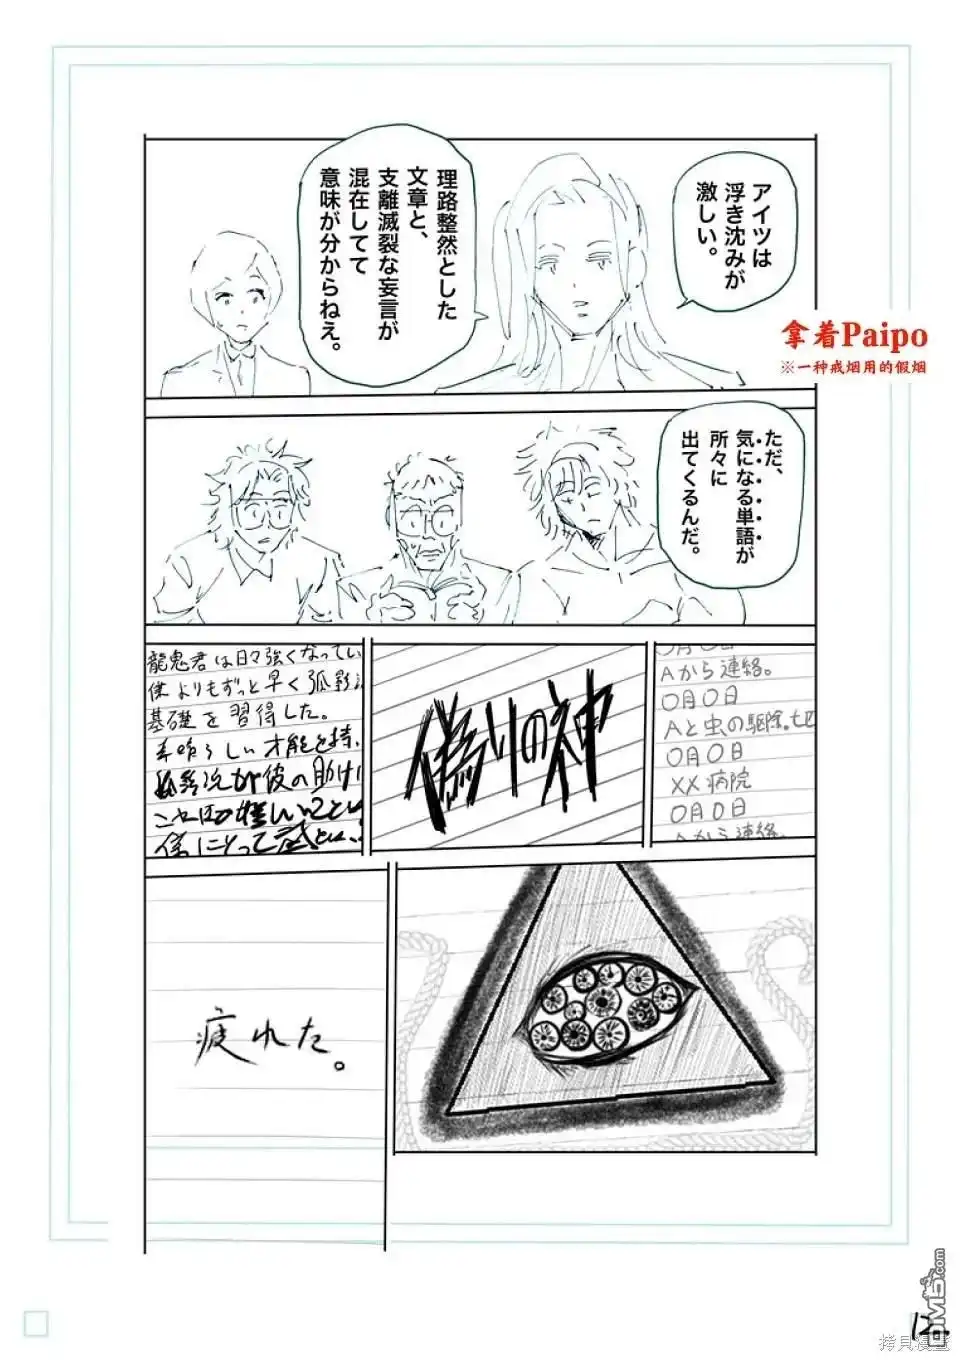 アイツは
浮き沈みが
激しい。
理路整然とした
文章と、
支離滅裂な妄言が
混在してて
意味が分からねえ。
拿着Paipo
※一种戒烟用的假烟
ただ、
気になる単語が
所々に
出てくるんだ。
〇月〇日
Aから連絡。
〇月〇日
Aと虫の駆除。
〇月〇日
XX病院
〇月〇日
Aから連絡。
偽りの神
龍鬼君は日々強くなってい
僕よりもずっと早く弧影
基礎を習得した。
素晴らしい才能を持
彼の助け
僕にとって
疲れた。
12
拷貝漫畫